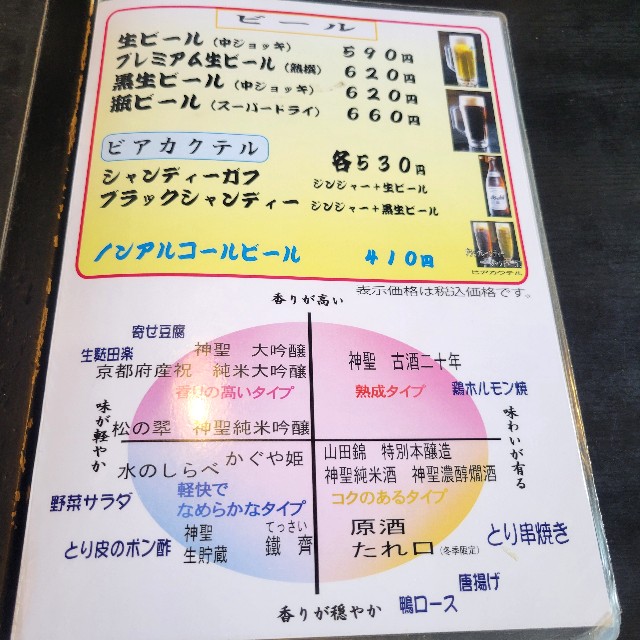 ビール
生ビール（中ジョッキ） 590円
プレミアム生ビール（熟撰） 620円
黒生ビール（中ジョッキ） 620円
瓶ビール（スーパードライ） 660円
ビアカクテル 各530円
シャンディーガフ ジンジャー+生ビール
ブラックシャンディー ジンジャー+黒生ビール
ノンアルコールビール 410円
ビアカクテル
表示価格は税込価格です。
香りが高い
寄せ豆腐
生麩田楽
神聖 大吟醸
京都府産祝 純米大吟醸
香りの高いタイプ
松の翠 神聖純米吟醸
味が軽やか
神聖 古酒二十年
熟成タイプ
鶏ホルモン焼
味わいが有る
水のしらべ かぐや姫
軽快で
なめらかなタイプ
野菜サラダ
とり皮のポン酢
神聖
生貯蔵
てっさい
鐵齊
山田錦 特別本醸造
神聖純米酒 神聖濃醇燗酒
コクのあるタイプ
原酒
たれ口（冬季限定）
とり串焼き
唐揚げ
鴨ロース
香りが穏やか